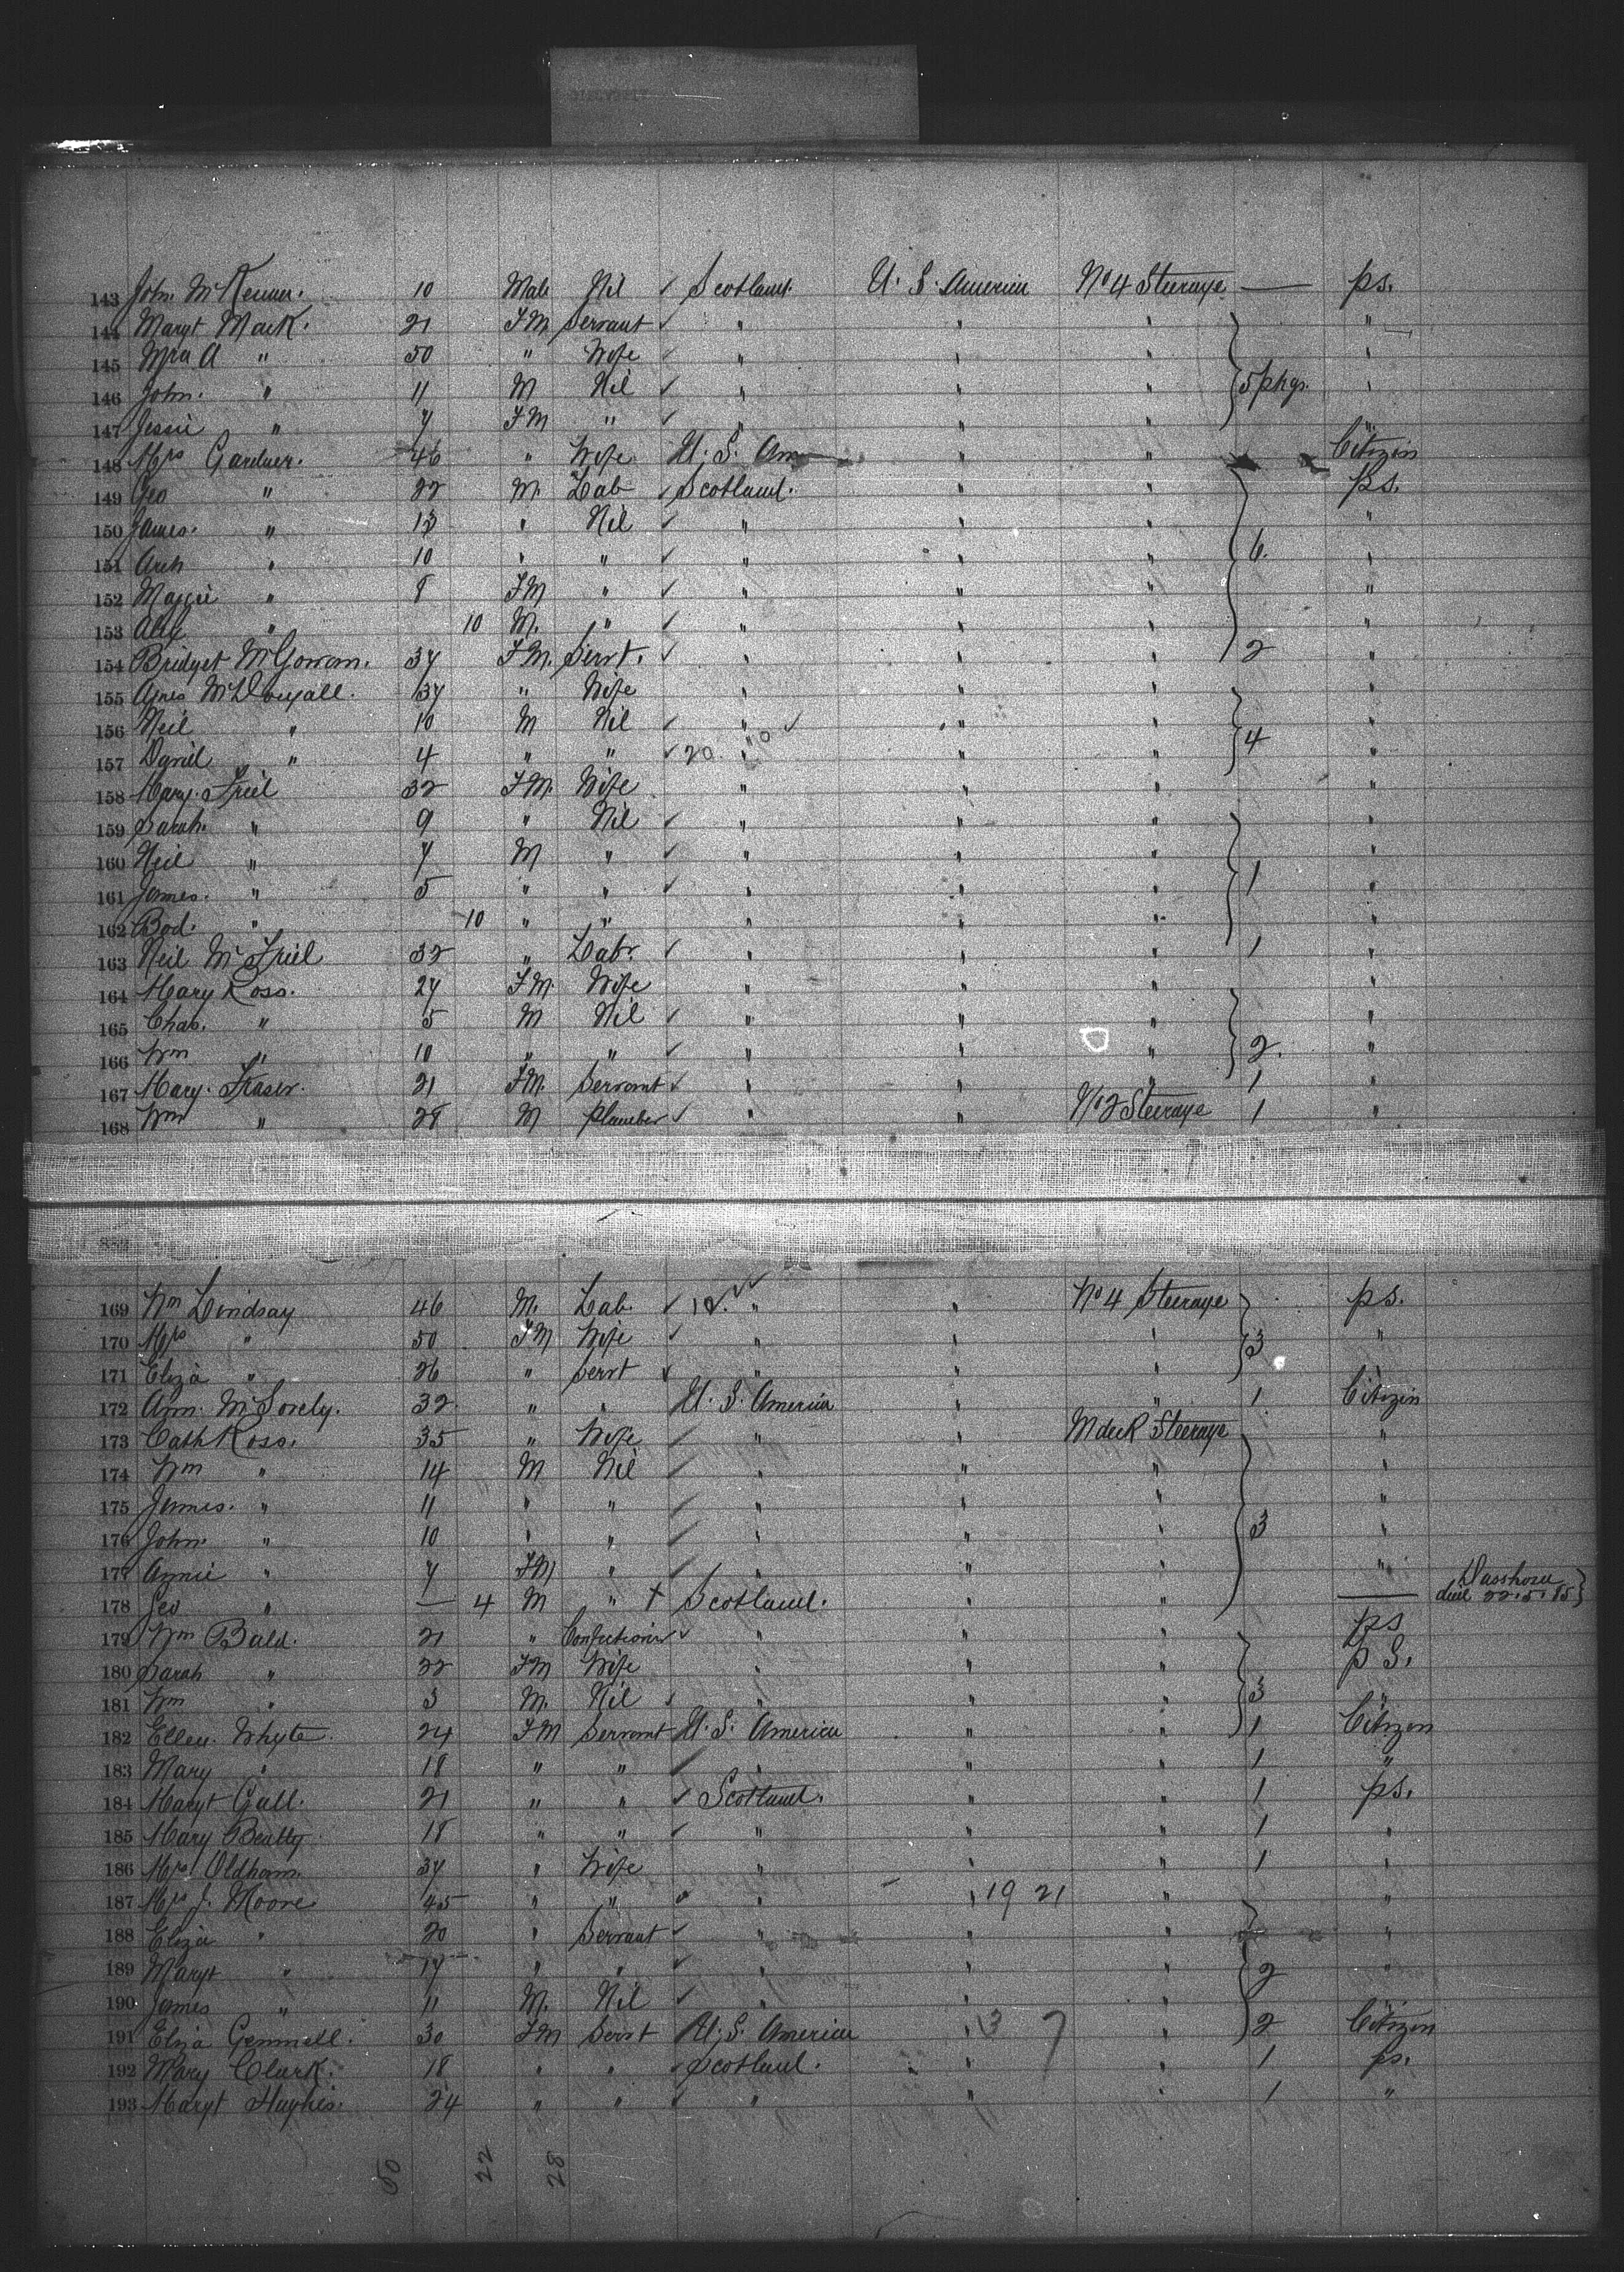 143 John McKenna. 10 Male Nil ✓ Scotland. U. S. America No 4 Steerage — ps.
144 Margt Mack. 21 FM Servant ✓ " " " "
145 Mrs A " 50 " Wife ✓ " " " "
146 John. " 11 M Nil ✓ " " " 5 pkgs. "
147 Jessie " 7 FM " ✓ " " " "
148 Mrs Gardner. 46 " Wife U. S. Am " " Citizin
149 Geo " 22 M. Lab ✓ Scotland. " " ps.
150 James. " 13 " Nil ✓ " " " "
151 Arch " 10 " " ✓ " " " 6. "
152 Maggie " 8 FM " ✓ " " " "
153 Alex " 10 M. " ✓ " " " "
154 Bridget McGowan. 37 FM. Servt. ✓ " " " 2 "
155 Agnes McDougall. 37 " Wife " " " "
156 Neil " 10 M Nil ✓ " ✓ " " "
157 Daniel " 4 " " ✓ 20 " " " 4 "
158 Mary Friel 32 FM. Wife " " " "
159 Sarah. " 9 " Nil ✓ " " " "
160 Neil " 7 M " ✓ " " " "
161 James. " 5 " " ✓ " " " 1 "
162 " 10 " " " " " "
163 Neil McFriel 32 " Labr. ✓ " " " 1 "
164 Mary Ross. 27 FM. Wife " " " "
165 Chas. " 5 M Nil ✓ " " " "
166 Wm " 10 " " ✓ " " " 2. "
167 Mary. Fraser. 21 FM. Servant ✓ " " " 1 "
168 Wm " 28 M Plumber ✓ " " No 2 Steerage 1 "
169 Wm Lindsay 46 M. Lab. ✓ " " No 4 Steerage ps.
170 Mrs " 50 FM Wife ✓ " " 3 "
171 Eliza " 26 " Servt ✓ " "
172 Ann. McSorely. 32. " " U. S. America " " 1 Citizin
173 Cath Ross. 35 " Wife ✓ " " Mdeck Steerage "
174 Wm " 14 M Nil ✓ " " " "
175 James. " 11 " " ✓ " " " "
176 John. " 10 " " ✓ " " " 3 "
177 Annie " 7 FM " ✓ " " " "
178 Geo " — 4 M " † Scotland. " " — died 22.5.85 }
179 Wm Bald. 21 " Confectioner ✓ " " " ps
180 Sarah " 22 FM Wife " " " p S.
181 Wm " 3 M. Nil ✓ " " " 3 "
182 Ellen. Whyte. 24 FM Servant U. S. America " " 1 Citizen
183 Mary " 18 " " ✓ " " " 1 "
184 Margt Gall. 21 " " ✓ Scotland. " " 1 ps.
185 Mary Beatty 18 " " ✓ " " " 1 "
186 Mrs Oldham. 37 " Wife " " " 1 "
187 Mrs J. Moore 45 " " " " 19 21 " "
188 Eliza " 20 " Servant ✓ " " " "
189 Margt " 17 " " ✓ " " " 2 "
190 James " 11 M. Nil ✓ " "
191 Eliza Gemmell. 30 FM Servt U. S. America 13 7 " 2 Citizen
192 Mary Clark. 18 " " ✓ Scotland. " " 1 ps.
193 Margt Hughes. 24 " " ✓ " " " 1 "
50 22 28